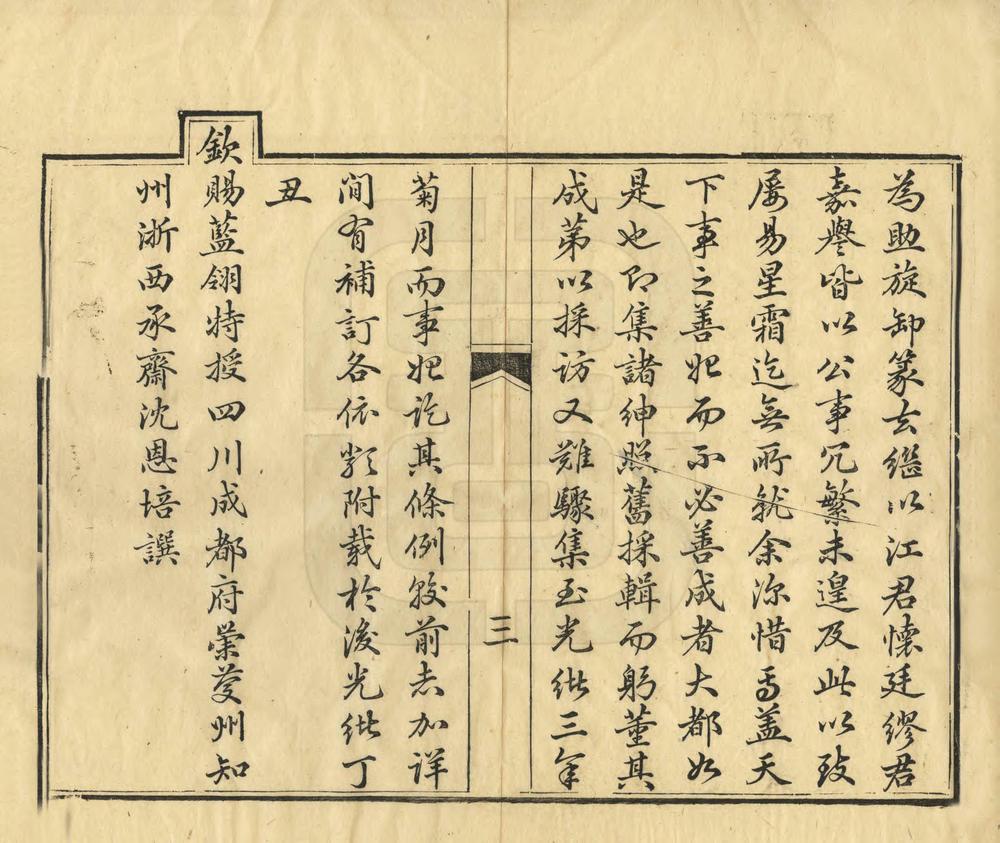 為助旋卸篆去繼以江君懷廷繆君
嘉譽皆以公事冗繁未遑及此以致
屡易星霜迄無所就余深惜焉蓋天
下事之善始而不必善成者大都如
是也即集諸紳照舊採輯而躬董其
成第以採访又難驟集至光緒三年
三
菊月而事始訖其條例較前志加详
间有補訂各依類附载於後光緒丁
丑
欽賜藍翎特授四川成都府崇慶州知
州浙西承齋沈恩培譔